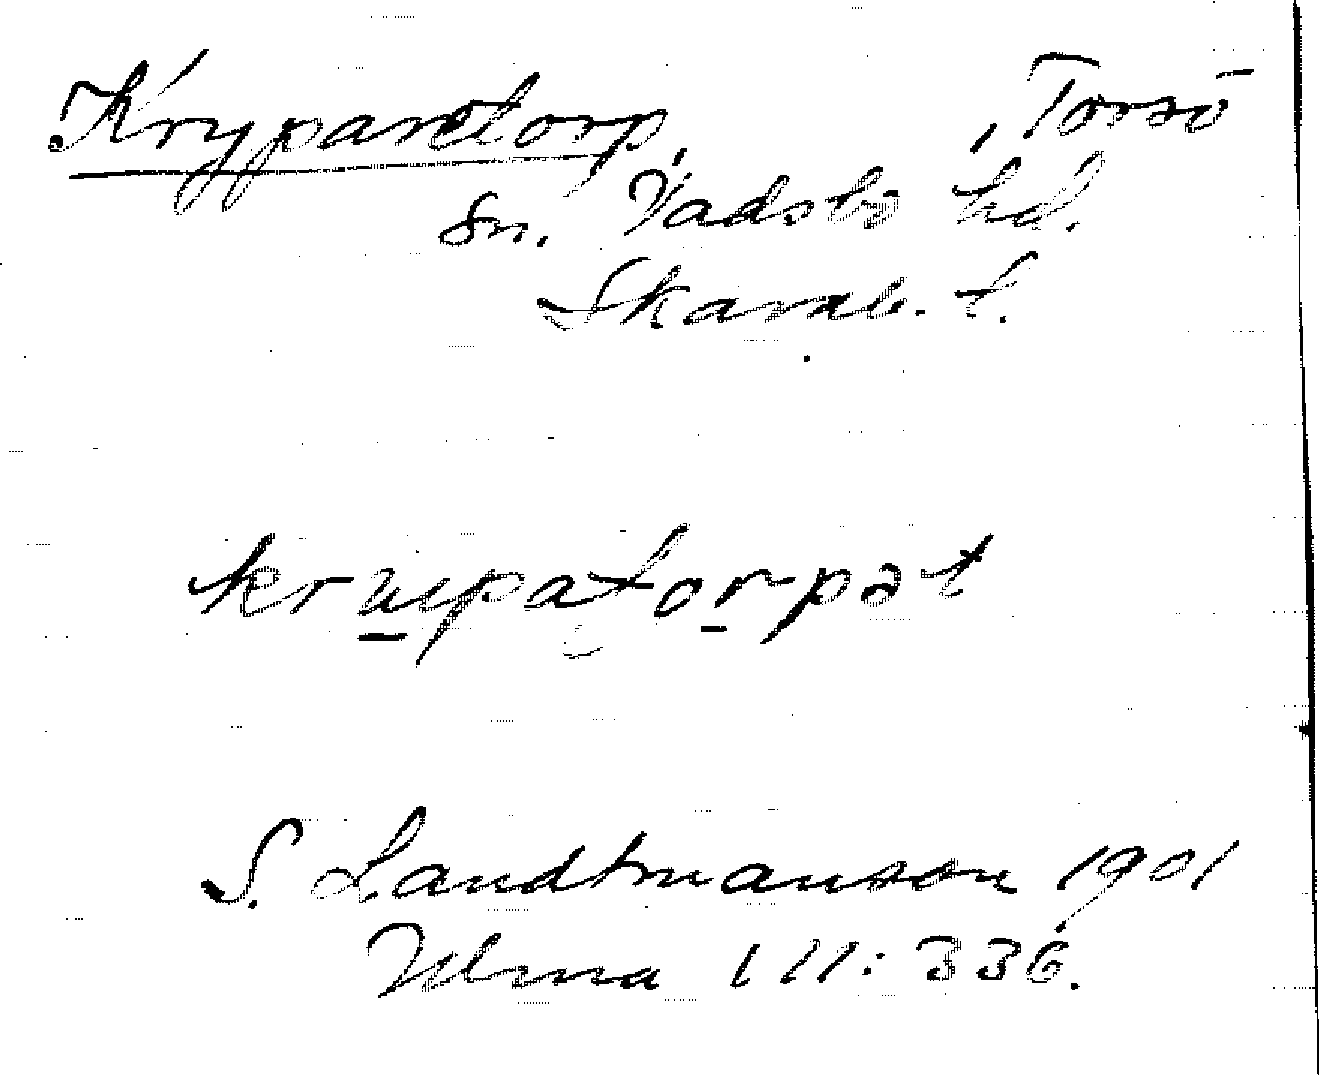 Kryparetorp, Torsö
Sn. Vadsbo hd.
Skarab. l.
krypatorpət
S. Landtmanson 1901
Ulma 111:336.